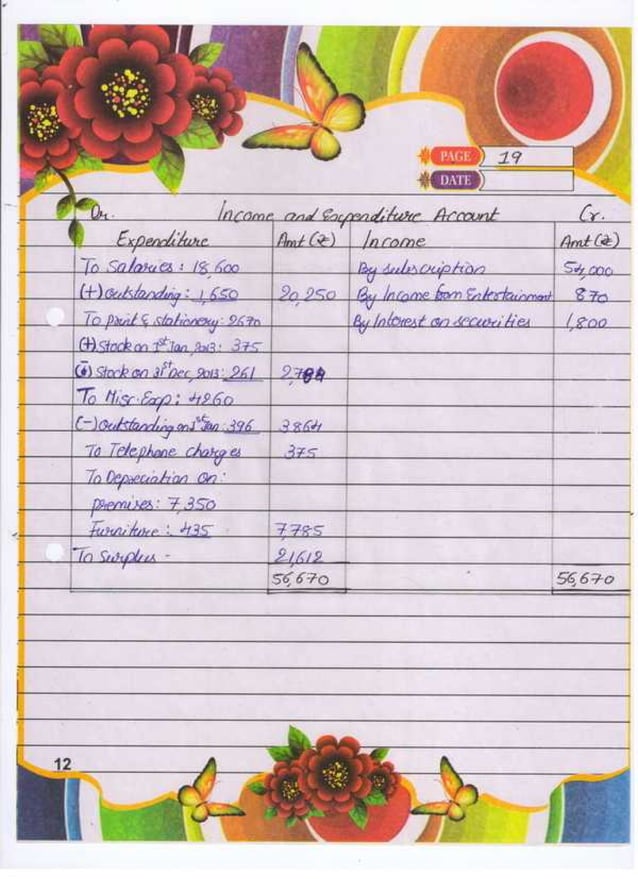 PAGE 19
DATE
Dr. Income and Expenditure Account Cr.
Expenditure Amt (₹) Income Amt (₹)
To Salaries: 18,600 By subscription 54,000
(+) outstanding: 1,650 20,250 By Income from Entertainment 870
To print & stationery: 2670 By Interest on securities 1,800
(+) Stock on 1st Jan, 2013: 375
(-) Stock on 31st Dec, 2013: 261 2,784
To Misc. Exp: 4260
(-) outstanding on 1st Jan: 396 3864
To Telephone charges 375
To Depreciation on:
premises: 7,350
Furniture: 435 7,785
To Surplus - 21,612
56,670 56,670
12